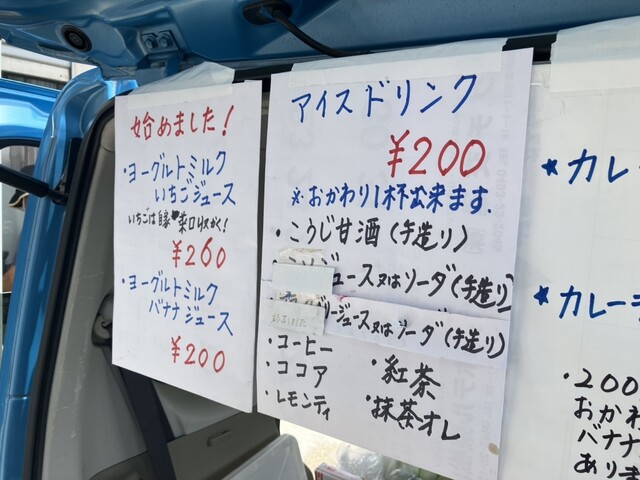 始めました!
・ヨーグルトミルク
いちごジュース
¥260
・ヨーグルトミルク
バナナジュース
¥200
アイスドリンク
¥200
※おかわり1杯出来ます.
・こうじ甘酒(手造り)
ジュース又はソーダ(手造り)
ージュース又はソーダ(手造り)
・コーヒー
・ココア
・レモンティ
・紅茶
・抹茶オレ
★カレー
★カレー
・200
おかわ
バナナ
ありま